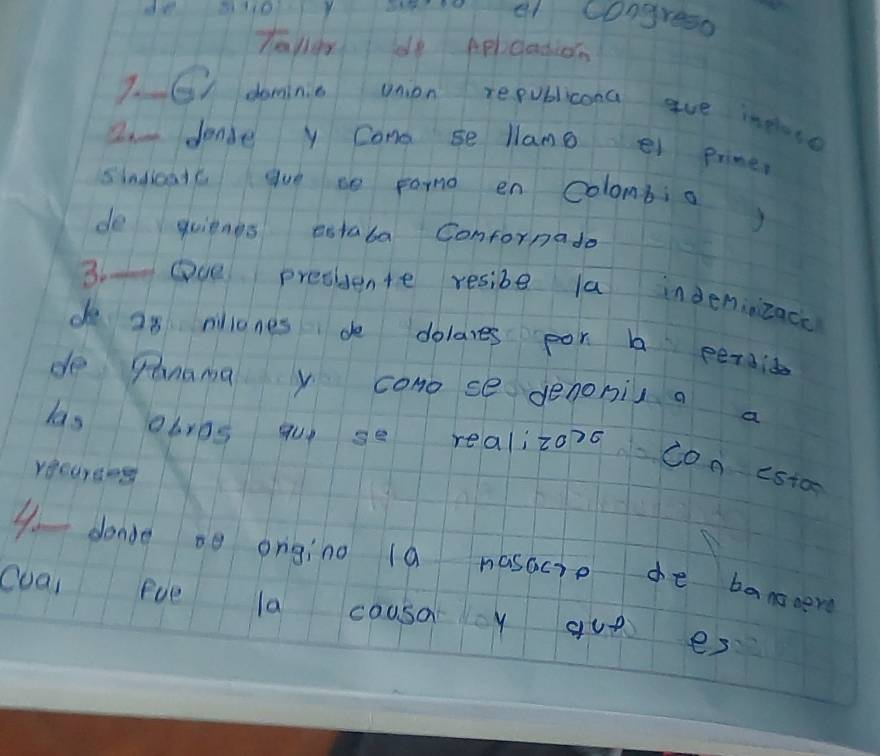 de sitio y sitio el Congreso
Taller de Aplicación
1.— El dominio union republicona que
2.— donde y Como se llamo el primer
sindicato que se formo en Colombia y
de quienes estaba Conformado
3.— Que presidente resibe la
de 28 millones de dolares por la perdida
de Panama y como se denomina a
las obras que se realizaro con estos
recursos
4.— donde se origino la masacre de
Cual fue la causa y que es